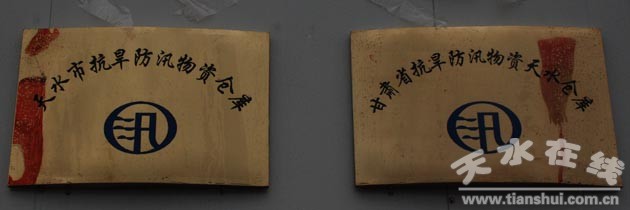 天水市抗旱防汛物资仓库
汛
甘肃省抗旱防汛物资天水仓库
汛
天水在线
www.tianshui.com.cn